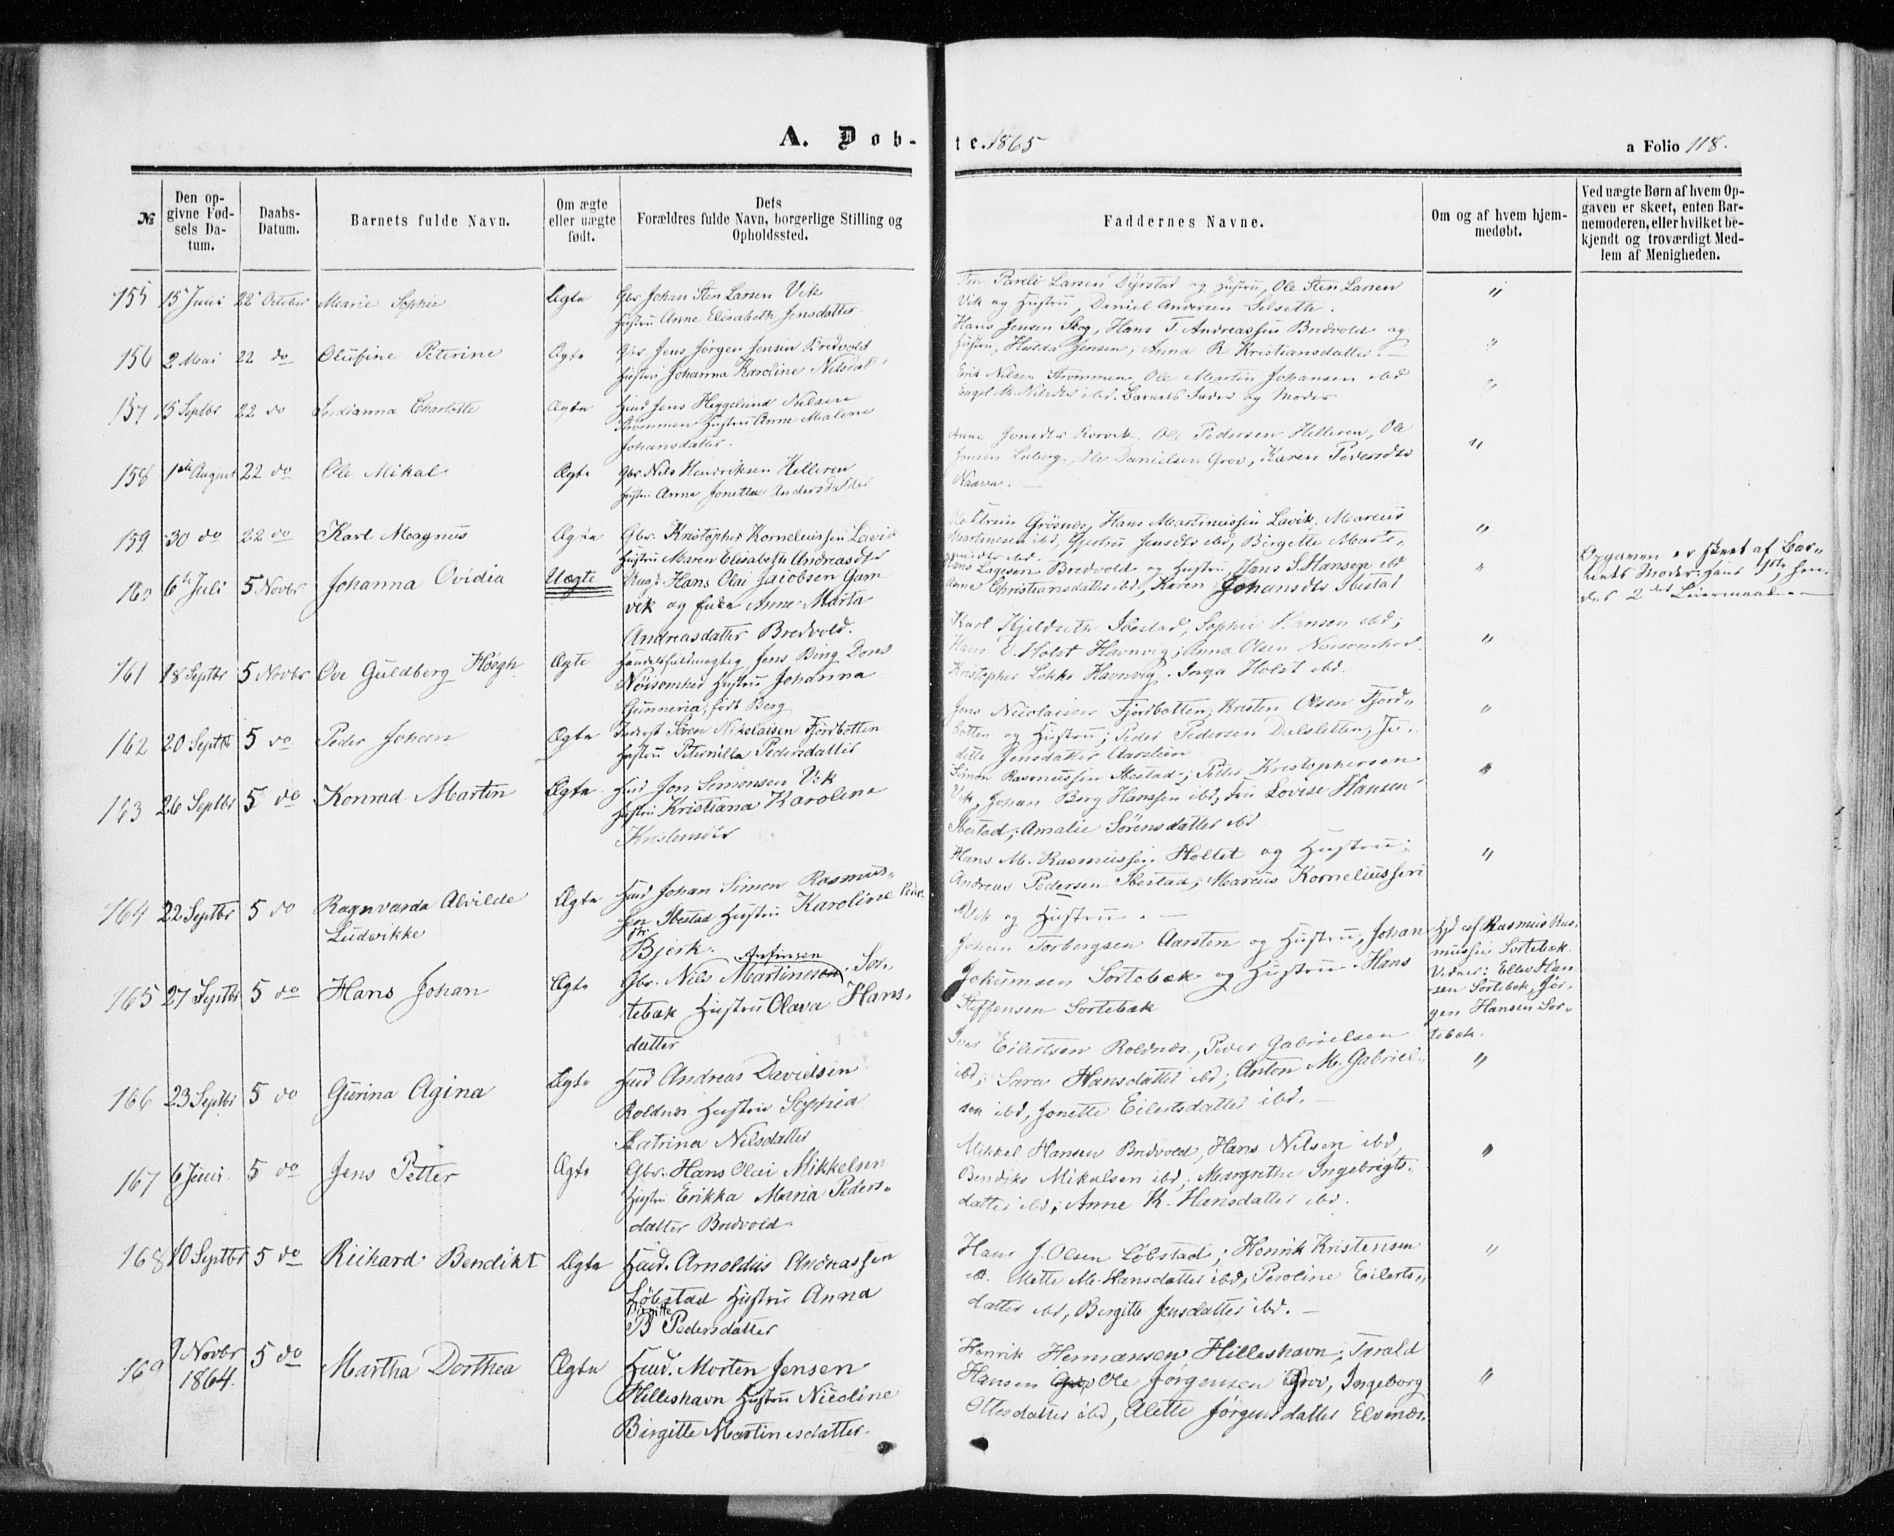 A. Døb-
te. 1865
a Folio 118.
№
Den op-
givne Fød-
sels Da-
tum.
Daabs-
Datum.
Barnets fulde Navn.
Om ægte
eller uægte
født.
Dets
Forældres fulde Navn, borgerlige Stilling og
Opholdssted.
Faddernes Navne.
Om og af hvem hjem-
medøbt.
Ved uægte Børn af hvem Op-
gaven er skeet, enten Bar-
nemoderen, eller hvilket be-
kjendt og troværdigt Med-
lem af Menigheden.
155 15 Juni 22 October Marie Sophie Ægte Gbr. Johan Sten Larsen Vik
Hustru Anne Elisabeth Jensdatter
Pareli Larsen Dyrstad og Hustru, Ole Sten Larsen
Vik og Hustru, Daniel Andersen Selseth.
"
156 2 Mai 22 do Olufine Peterine Ægte Gbr Jens Jørgen Jensen Bredvold
Hustru Johanna Karoline Nilsdat
Hans Jensen Skog, Hans T. Andreassen Bredvold og
Hustru, Hulda Jensen, Anna R Kristiansdatter.
"
157 15 Septbr 22 do Charlotte Ægte Huusd Jens Heggelund Nilsen
Strømmen Hustru Anne Malene
Johansdatter.
Erik Nilsen Strømmen, Ole Martin Johansen ibd
Engel M. Nilsdtr ibd. Barnets Fader og Moder
"
158 1ste August 22 do Ole Mikal Ægte Gbr. Nils Hendriksen Helleren
Hustru Anne Jonetta Andersdatter
Anne Jensdtr Rørvik, Ole Pedersen Helleren, Ole
Jensen Laberg, Ole Danielsen Grov, Karen Pedersdtr
"
159 30 do 22 do Karl Magnus Ægte Gbr. Kristopher Korneliussen Lavik
Hustru Maren Elisabeth Andreasdtr
Grøsnes, Hans Martinussen Lavik, Marcus
Martinesen ibd, Gjertru Jensdtr ibd, Birgitte Mart-
"
160 6te Juli 5 Novbr Johanna Ovidia Uægte Ungk Hans Olai Jacobsen Gam
vik og Enke Anne Marta
Andreasdatter Bredvold.
Hans Larsen Bredvold og Hustru, Hans S. Hansen ibd
Anne Christiansdatter ibd, Karen Johansdtr Ibestad
"
Opgaven er skeet af Bar-
nets Moder. Hans 1ste, hen-
des 2det Leiermaal.
161 18 Septbr 5 Novbr Ove Guldberg Høegh Ægte Handelsfuldmægtig Jens Bing Dons
Nøisomhed Hustru Johanna
Gunneria, født Berg
Karl Kjeldseth Ibestad, Sophie Hansen ibd;
Hans E. Holst Havnvig; Anna Olsen Nøisomhed.
Kristopher Lokke Havnvig. Inga Holst ibd.
"
162 20 Septbr 5 do Peder Johan Ægte Inderst Søren Nikolaisen Fjordbotten
Hustru Peternilla Pedersdatter
Jens Nicolaisen Fjordbotten; Kristen Olsen Fjord-
botten og Hustru; Peder Pedersen Dalsletten, Ju-
ditte Jensdatter Aarstein
"
163 26 Septbr 5 do Konrad Martin Ægte Huusd Jon Simonsen Vik
Hustru Kristiana Karoline
Kristensdtr
Simon Rasmussen Ibestad; Petter Kristophersen
Vik, Johan Berg Hanssen ibd, Lovise Hansen
Ibestad; Amalie Sørensdatter ibd
"
164 22 Septbr 5 do Ragnvarda Alvilde
Ludvikke
Ægte Huusd Johan Simon Rasmus-
sen Ibestad Hustru Karoline Peders
dtr Bjerk.
Hans M. Rasmussen Holtet og Hustru;
Andreas Pedersen Ibestad; Marcus Korneliussen
Vik og Hustru.
"
165 27 Septbr 5 do Hans Johan Ægte Gbr. Nils Martinesen Anfinsen Sor-
tebæk Hustru Olava Hans-
datter
Johan Torbergsen Aarsten og Hustru, Johan
Jokumsen Sortebæk og Hustru. Hans
Steffensen Sortebæk
Hjd af Rasmus Ras-
mussen Sortebæk.
Vidner: Elles Han
sen Sortebæk, Jør-
gen Hansen Sor-
tebæk.
166 23 Septbr 5 do Gurina Agina Ægte Huusd Andreas Davidsen
Roldnæs Hustru Sophia
Katrina Nilsdatter
Iver Eilertsen Roldnæs, Peder Gabrielsen
ibd; Sara Hansdatter ibd; Anton M. Gabriel-
sen ibd, Jonette Eilertsdatter ibd.
"
167 6 Juni 5 do Jens Petter Ægte Gbr. Hans Olai Mikkelsen
Hustru Erikka Maria Peders-
datter Bredvold
Mikkel Hansen Bredvold, Hans Nilsen ibd,
Bendiks Mikalsen ibd; Margrethe Ingebrigts-
datter ibd; Anne K. Hansdatter ibd.
"
168 10 Septbr 5 do Richard Bendikt Ægte Huusd. Arnoldus Andreassen
Løbstad Hustru Anna
Birgitte
B Pedersdatter
Hans J. Olsen Løbstad; Henrik Kristensen
ibd. Mette M. Hansdatter ibd, Peroline Eilerts-
datter ibd, Birgitte Jensdatter ibd.
"
169 9 Novbr
1864.
5 do Martha Dorthea Ægte Huusd. Morten Jensen
Hilleshavn Hustru Nicoline
Birgitte Martinesdatter
Henrik Hemansen Hilleshavn; Tarald
Hansen Ole Jørgensen Grov, Ingeborg
Ottesdatter ibd, Alette Jørgensdatter Elvenes.
"